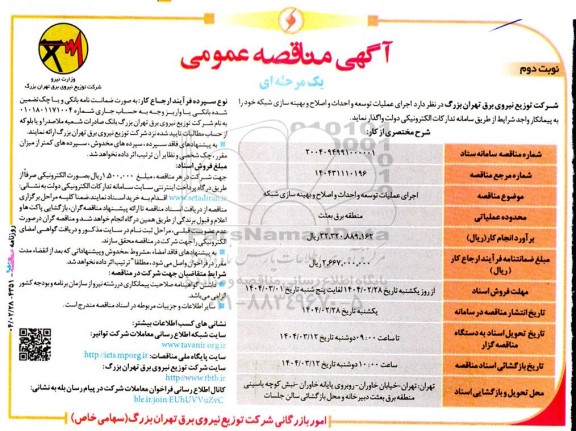 آگهی مناقصه عمومی
یک مرحله ای
نوبت دوم
وزارت نیرو
شرکت توزیع نیروی برق تهران بزرگ
شرکت توزیع نیروی برق تهران بزرگ در نظر دارد اجرای عملیات توسعه و احداث و اصلاح و بهینه سازی شبکه خود را
به پیمانکار واجد شرایط از طریق سامانه تدارکات الکترونیکی دولت واگذار نماید.
شرح مختصری از کار:
شماره مناقصه سامانه ستاد
۲۰۰۴۰۹۴۹۹۱۰۰۰۰۰۱
شماره مرجع مناقصه
۱۴۰۴۳۱۱۱۰۱۹۶
موضوع مناقصه
اجرای عملیات توسعه و احداث و اصلاح و بهینه سازی شبکه
محدوده عملیاتی
منطقه برق بعثت
برآورد انجام کار (ریال)
مبلغ ضمانتنامه فرآیند ارجاع کار
(ریال)
۲,۶۶۷,۰۰۰,۰۰۰ ریال
مهلت فروش اسناد
از روز یکشنبه تاریخ ۱۴۰۴/۰۲/۲۸ لغایت پنج شنبه تاریخ ۱۴۰۴/۰۳/۰۱
تاریخ انتشار مناقصه در سامانه
یکشنبه تاریخ ۱۴۰۴/۰۲/۲۸
تاریخ تحویل اسناد به دستگاه
مناقصه گزار
تا ساعت ۹:۰۰ دوشنبه تاریخ ۱۴۰۴/۰۳/۱۲
تاریخ بازگشائی اسناد مناقصه
ساعت ۱۰:۰۰ دوشنبه تاریخ ۱۴۰۴/۰۳/۱۲
محل تحویل و بازگشایی اسناد
تهران، تهران-خیابان خاوران-روبروی پایانه خاوران-نبش کوچه یاسینی
منطقه برق بعثت دبیرخانه و محل بازگشائی سالن جلسات
نوع سپرده فرآیند ارجاع کار: به صورت ضمانت نامه بانکی و یا چک تضمین
شده بانکی یا واریز وجه به حساب جاری شماره ۰۱۰۱۸۰۱۱۷۱۰۰۴
به نام شرکت توزیع نیروی برق تهران بزرگ بانک صادرات شعبه ملاصدرا و یا بلوکه
از حساب مطالبات تایید شده نزد شرکت توزیع نیروی برق تهران بزرگ ارائه نمایند.
به پیشنهادهای فاقد سپرده، سپرده های مخدوش، سپرده های کمتر از میزان
مقرر، چک شخصی و نظایر آن ترتیب اثر داده نخواهد شد.
مبلغ فروش اسناد:
جهت شرکت در هر مناقصه، مبلغ ۱,۵۰۰,۰۰۰ ریال به صورت الکترونیکی صرفاً از
طریق درگاه پرداخت اینترنتی سایت سامانه تدارکات الکترونیکی دولت به نشانی:
www.setadiran.ir اقدام به خرید اسناد نمایند. ضمنا کلیه مراحل برگزاری
مناقصه از دریافت اسناد مناقصه تا ارائه پیشنهاد مناقصه گران، بازگشایی پاکت ها و
اعلام و قبول برندگی از طریق همین درگاه انجام خواهد شد و مناقصه گران در صورت
عدم عضویت قبلی، مراحل ثبت نام در سایت مذکور و دریافت گواهی امضای
الکترونیکی را جهت شرکت در مناقصه محقق سازند.
به پیشنهادهای فاقد امضاء، مشروط، مخدوش و پیشنهاداتی که بعد از انقضاء مدت
مقرر در فراخوان واصل می شود، مطلقا ترتیب اثر داده نخواهد شد.
شرایط متقاضیان جهت شرکت در مناقصه:
داشتن گواهینامه صلاحیت پیمانکاری در رشته نیرو از سازمان برنامه و بودجه کشور
الزامی می باشد.
سایر اطلاعات و جزییات مربوطه در اسناد مناقصه مندرج است.
نشانی های کسب اطلاعات بیشتر:
سایت شبکه اطلاع رسانی معاملات شرکت توانیر:
www.tavanir.org.ir
سایت پایگاه ملی مناقصات: http://iets.mporg.ir
سایت شرکت توزیع نیروی برق تهران بزرگ:
http://www.tbtb.ir
کانال اطلاع رسانی فراخوان معاملات شرکت در پیام رسان بله به نشانی:
ble.ir/join/EUhUVVuZvC
امور بازرگانی شرکت توزیع نیروی برق تهران بزرگ (سهامی خاص)